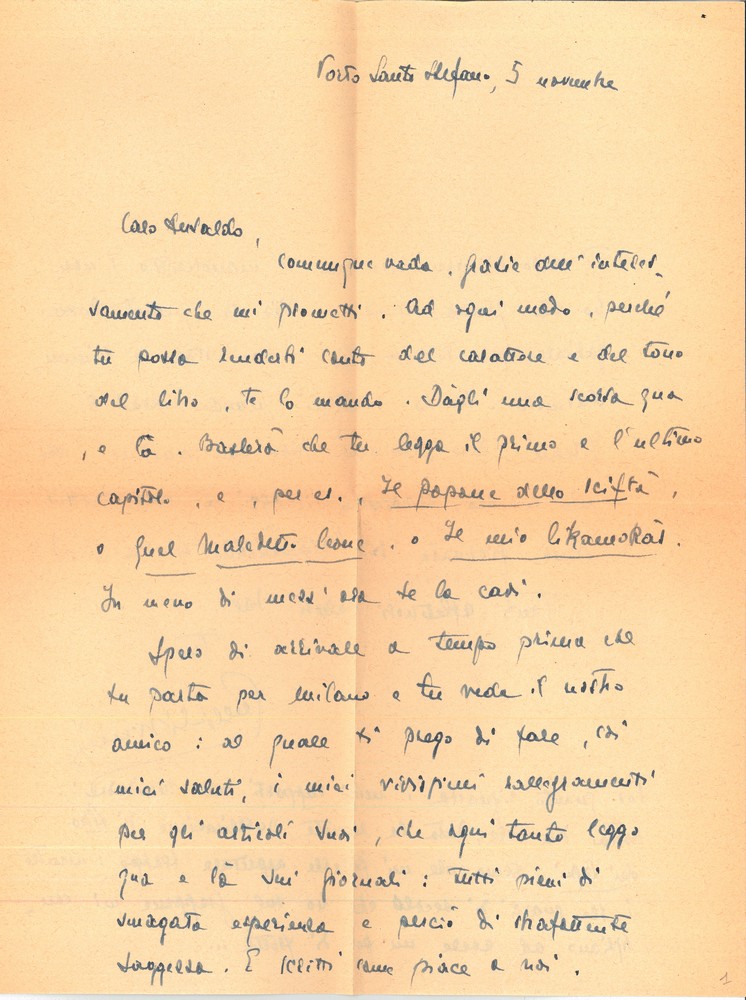 Porto Santo Stefano, 5 novembre
Caro Ansaldo,
comunque vada, grazie dell'interes-
samento che mi prometti. Ad ogni modo, perché
tu possa renderti conto del carattere e del tono
del libro, te lo mando. Dàgli una scorsa qua
, e là. Basterà che tu legga il primo e l'ultimo
capitolo, e, per es., Il popone dello Sciftà,
o Quel maledetto leone, o Il mio likamokàs.
In meno di mezz'ora te la cavi.
Spero di arrivare a tempo prima che
tu parta per Milano e tu veda il nostro
amico: al quale ti prego di fare, coi
miei saluti, i miei vivissimi rallegramenti
per gli articoli suoi, che ogni tanto leggo
qua e là sui giornali: tutti pieni di
smagata esperienza e perciò di strafottente
saggezza. E scritti come piace a noi.
1